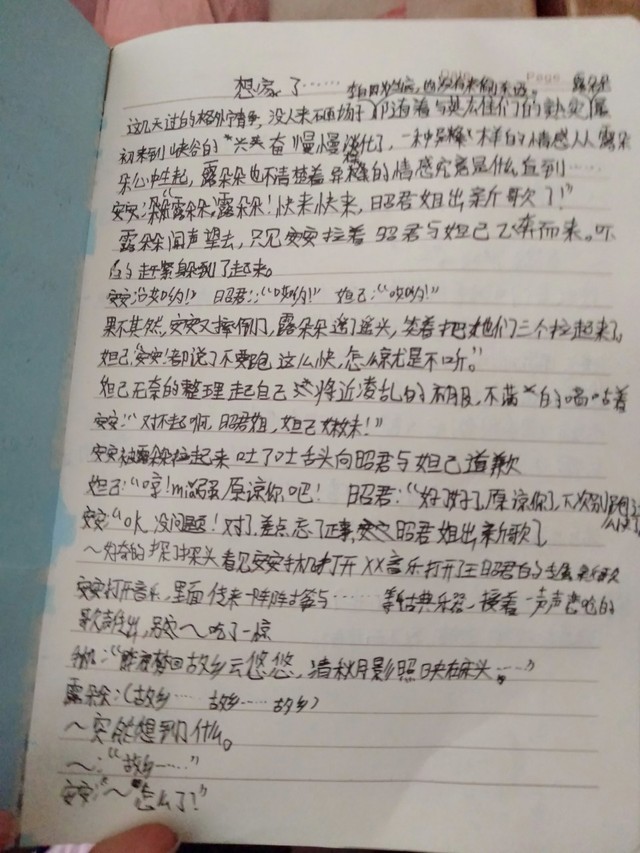 想家了……
Page
露朵朵
这几天过的格外清净,没人来不西场于 的
初来到峡谷的"兴奋"慢慢淡化了,一种 样的情感从露
朵心中生起,露朵朵也不清楚着 的情感究竟是什么直到……
安安:"露朵朵,露朵朵!快来快来,昭君姐出新歌了!"
露朵朵闻声望去,只见安安拉着昭君与妲己飞奔而来。吓
的赶紧躲到了起来。
安安:"哎哟!" 昭君:"哎哟!" 妲己:"哎哟!"
果不其然,安安又摔倒了,露朵朵摇了摇头,笑着把她们三个拉起来了
妲己:"安安!都说了不要跑这么快,怎么就是不听。"
妲己无奈的整理起自己这将近凌乱的衣服,不满的嘀咕着
安安:"对不起啊,昭君姐,妲己妹妹!"
安安被露朵朵拉起来吐了吐舌头向昭君与妲己道歉
妲己:"哼!勉强原谅你吧! 昭君:"好了好了,原谅你了,下次别跑
安安:"ok没问题!对了,差点忘了正事,昭君姐出新歌了
~好奇的探了探头看见安安手机打开XX音乐打开了王昭君的 新歌
安安打开音乐,里面传来一阵阵古筝与……等古典乐器,接着一声声 的
歌声传出, ~吃了一惊
手机:" 梦回故乡云悠悠,清秋月影照映在床头……"
露朵朵:(故乡…… 故乡…… 故乡)
~突然想到了什么。
~:"故乡……"
安安:"~怎么了!"